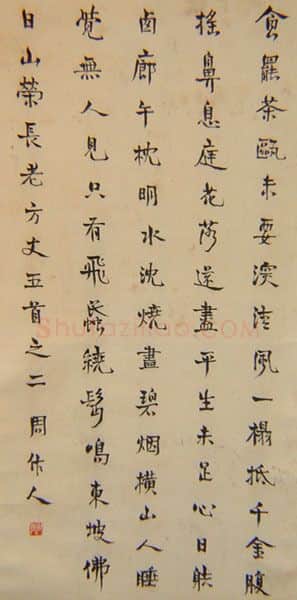 食罷茶甌未要深清風一榻抵千金腹
搖鼻息庭花落還盡平生未足心日射
囬廊午枕明水沈燒盡碧烟橫山人睡
覺無人見只有飛蟁繞鬢鳴東坡佛
日山榮長老方丈五首之二 周作人